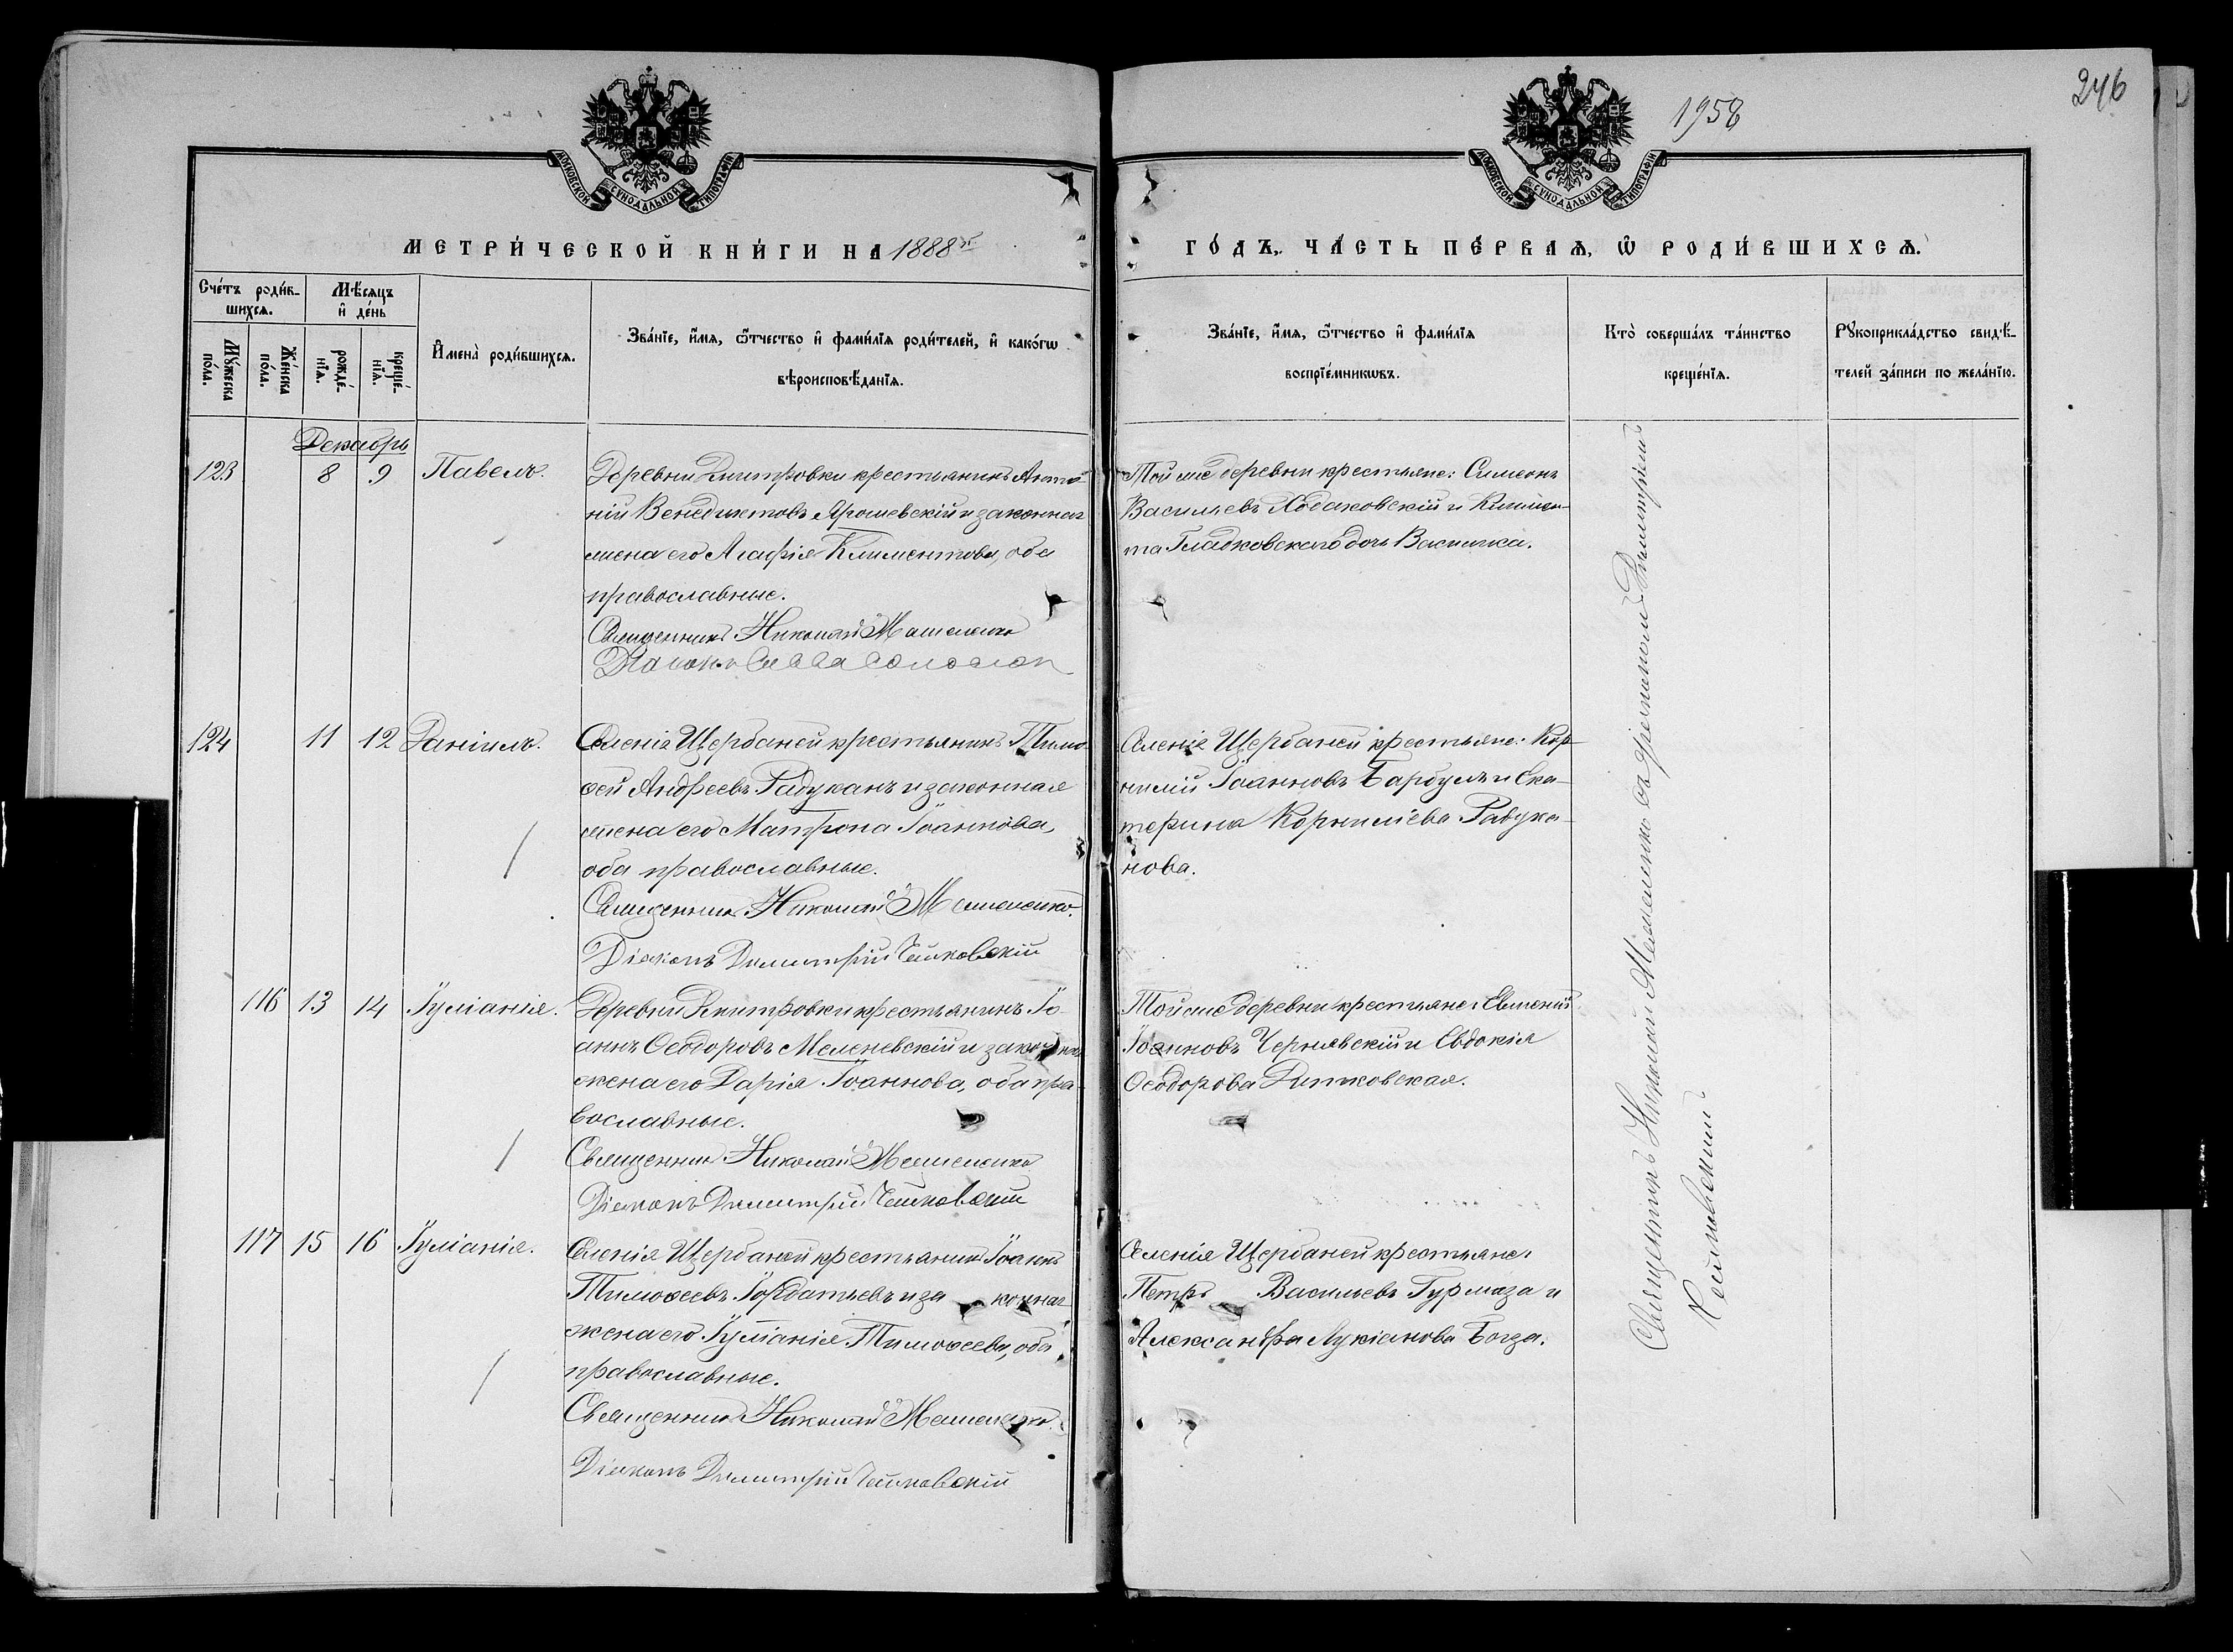 246
1958
МОСКОВСКОЙ СѴНОДАЛЬНОЙ ТИПОГРАФІИ
МОСКОВСКОЙ СѴНОДАЛЬНОЙ ТИПОГРАФІИ
МЕТРИ́ЧЕСКОЙ КНИ́ГИ НА 1888й
ГО́ДЪ, ЧА́СТЬ ПЕ́РВАѦ, Ѡ РОДИ́ВШИХСѦ.
Сче́тъ роди́в-
шихсѧ.
Мѣ́сѧцъ
и҆ де́нь
Мꙋ́жеска
по́ла.
Же́нска
по́ла.
рожде́-
нїѧ.
креще́-
нїѧ.
И҆мена̀ роди́вшихсѧ.
Зва́нїе, и҆́мѧ, ѻ҆́тчество и҆ фами́лїѧ роди́телей, и҆ како́гѡ
вѣроисповѣ́данїѧ.
Зва́нїе, и҆́мѧ, ѻ҆́тчество и҆ фами́лїѧ
воспрїе́мникѡвъ.
Кто̀ соверша́лъ та́инство
креще́нїѧ.
Рꙋкоприкла́дство свидѣ́-
телей за́писи по жела́нїю.
Декабрь
123 8 9 Павелъ.
Деревни Дмитровки крестьянинъ Анто-
ній Венедиктовъ Ярошевскій и законная
жена его Агафія Климентова, оба
православные.
Священникъ Николай Мешененко
Діаконъ Савва
Той же деревни крестьяне: Симеонъ
Васильевъ Ходаковскій и Климен-
та Гладковскаго дочь Василиса.
124 11 12 Даніилъ.
Селенія Щербаней крестьянинъ Тимо-
ѳей Андреевъ Радуканъ и законная
жена его Матрона Іоаннова,
оба православные.
Священникъ Николай Мешененко.
Діаконъ Димитрій Чайковскій
Селенія Щербаней крестьяне: Кор-
нилій Іоанновъ Барбулъ и Ека-
терина Корниліева Радука-
нова.
116 13 14 Іуліанія.
Деревни Дмитровки крестьянинъ Іо-
аннъ Ѳеодоровъ Меленевскій и законная
жена его Дарія Іоаннова, оба пра-
вославные.
Священникъ Николай Мешененко
Діаконъ Димитрій Чайковскій
Той же деревни крестьяне: Евменій
Іоанновъ Чернявскій и Евдокія
Ѳеодорова Дитковская.
117 15 16 Іуліанія.
Селенія Щербаней крестьянинъ Іоаннъ
Тимоѳеевъ и законная
жена его Іуліанія Тимоѳеева, оба
православные.
Священникъ Николай Мешененко.
Діаконъ Димитрій Чайковскій
Селенія Щербаней крестьяне:
Петръ Васильевъ Гурмаза и
Александра Лукіанова Богза.
Священникъ Николай Мешененко съ діакономъ Димитріемъ
Чайковскимъ